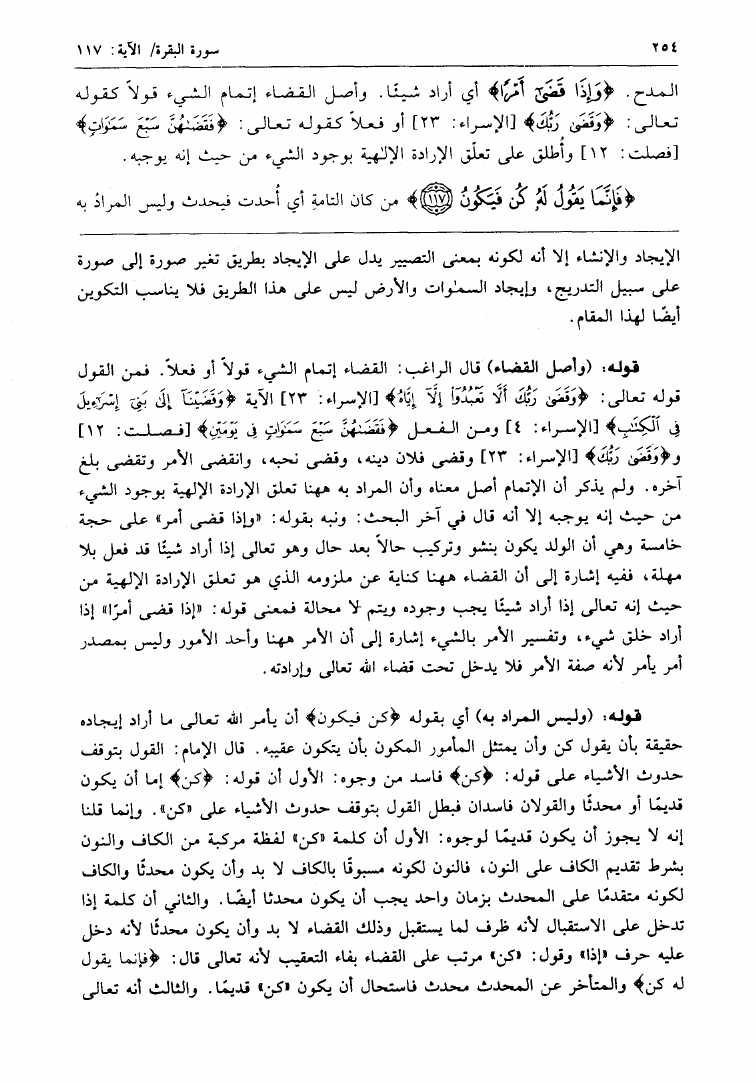 ٢٥٤
سورة البقرة/ الآية: ١١٧
المدح. ﴿وَإِذَا قَضَىٰٓ أَمْرًا﴾ أي أراد شيئًا. وأصل القضاء إتمام الشيء قولاً كقوله
تعالى: ﴿وَقَضَىٰ رَبُّكَ﴾ [الإسراء: ٢٣] أو فعلاً كقوله تعالى: ﴿فَقَضَىٰهُنَّ سَبْعَ سَمَٰوَاتٍ﴾
[فصلت: ١٢] وأُطلق على تعلّق الإرادة الإلٰهية بوجود الشيء من حيث إنه يوجبه.
﴿فَإِنَّمَا يَقُولُ لَهُۥ كُن فَيَكُونُ ﴿١١٧﴾﴾ من كان التامةِ أي أُحدث فيحدث وليس المرادُ به
الإيجاد والإنشاء إلا أنه لكونه بمعنى التصيير يدل على الإيجاد بطريق تغير صورة إلى صورة
على سبيل التدريج، وإيجاد السمٰوات والأرض ليس على هذا الطريق فلا يناسب التكوين
أيضًا لهذا المقام.
قوله: (وأصل القضاء) قال الراغب: القضاء إتمام الشيء قولاً أو فعلاً. فمن القول
قوله تعالى: ﴿وَقَضَىٰ رَبُّكَ أَلَّا تَعْبُدُوٓا۟ إِلَّآ إِيَّاهُ﴾ [الإسراء: ٢٣] الآية ﴿وَقَضَيْنَآ إِلَىٰ بَنِىٓ إِسْرَٰٓءِيلَ
فِى ٱلْكِتَٰبِ﴾ [الإسراء: ٤] ومن الفعل ﴿فَقَضَىٰهُنَّ سَبْعَ سَمَٰوَاتٍ فِى يَوْمَيْنِ﴾ [فصلت: ١٢]
و﴿وَقَضَىٰ رَبُّكَ﴾ [الإسراء: ٢٣] وقضى فلان دينه، وقضى نحبه، وانقضى الأمر وتقضى بلغ
آخره. ولم يذكر أن الإتمام أصل معناه وأن المراد به ههنا تعلق الإرادة الإلهية بوجود الشيء
من حيث إنه يوجبه إلا أنه قال في آخر البحث: ونبه بقوله: «وإذا قضى أمر» على حجة
خامسة وهي أن الولد يكون بنشو وتركيب حالاً بعد حال وهو تعالى إذا أراد شيئًا قد فعل بلا
مهلة، ففيه إشارة إلى أن القضاء ههنا كناية عن ملزومه الذي هو تعلق الإرادة الإلهية من
حيث إنه تعالى إذا أراد شيئًا يجب وجوده ويتم لا محالة فمعنى قوله: «إذا قضى أمرًا» إذا
أراد خلق شيء، وتفسير الأمر بالشيء إشارة إلى أن الأمر ههنا وأحد الأمور وليس بمصدر
أمر يأمر لأنه صفة الأمر فلا يدخل تحت قضاء الله تعالى وإرادته.
قوله: (وليس المراد به) أي بقوله ﴿كن فيكون﴾ أن يأمر الله تعالى ما أراد إيجاده
حقيقة بأن يقول كن وأن يمتثل المأمور المكون بأن يتكون عقيبه. قال الإمام: القول بتوقف
حدوث الأشياء على قوله: ﴿كن﴾ فاسد من وجوه: الأول أن قوله: ﴿كن﴾ إما أن يكون
قديمًا أو محدثًا والقولان فاسدان فبطل القول بتوقف حدوث الأشياء على «كن». وإنما قلنا
إنه لا يجوز أن يكون قديمًا لوجوه: الأول أن كلمة «كن» لفظة مركبة من الكاف والنون
بشرط تقديم الكاف على النون، فالنون لكونه مسبوقًا بالكاف لا بد وأن يكون محدثًا والكاف
لكونه متقدمًا على المحدث بزمان واحد يجب أن يكون محدثا أيضًا. والثاني أن كلمة إذا
تدخل على الاستقبال لأنه ظرف لما يستقبل وذلك القضاء لا بد وأن يكون محدثًا لأنه دخل
عليه حرف «إذا» وقول: «كن» مرتب على القضاء بفاء التعقيب لأنه تعالى قال: ﴿فإنما يقول
له كن﴾ والمتأخر عن المحدث محدث فاستحال أن يكون «كن» قديمًا. والثالث أنه تعالى